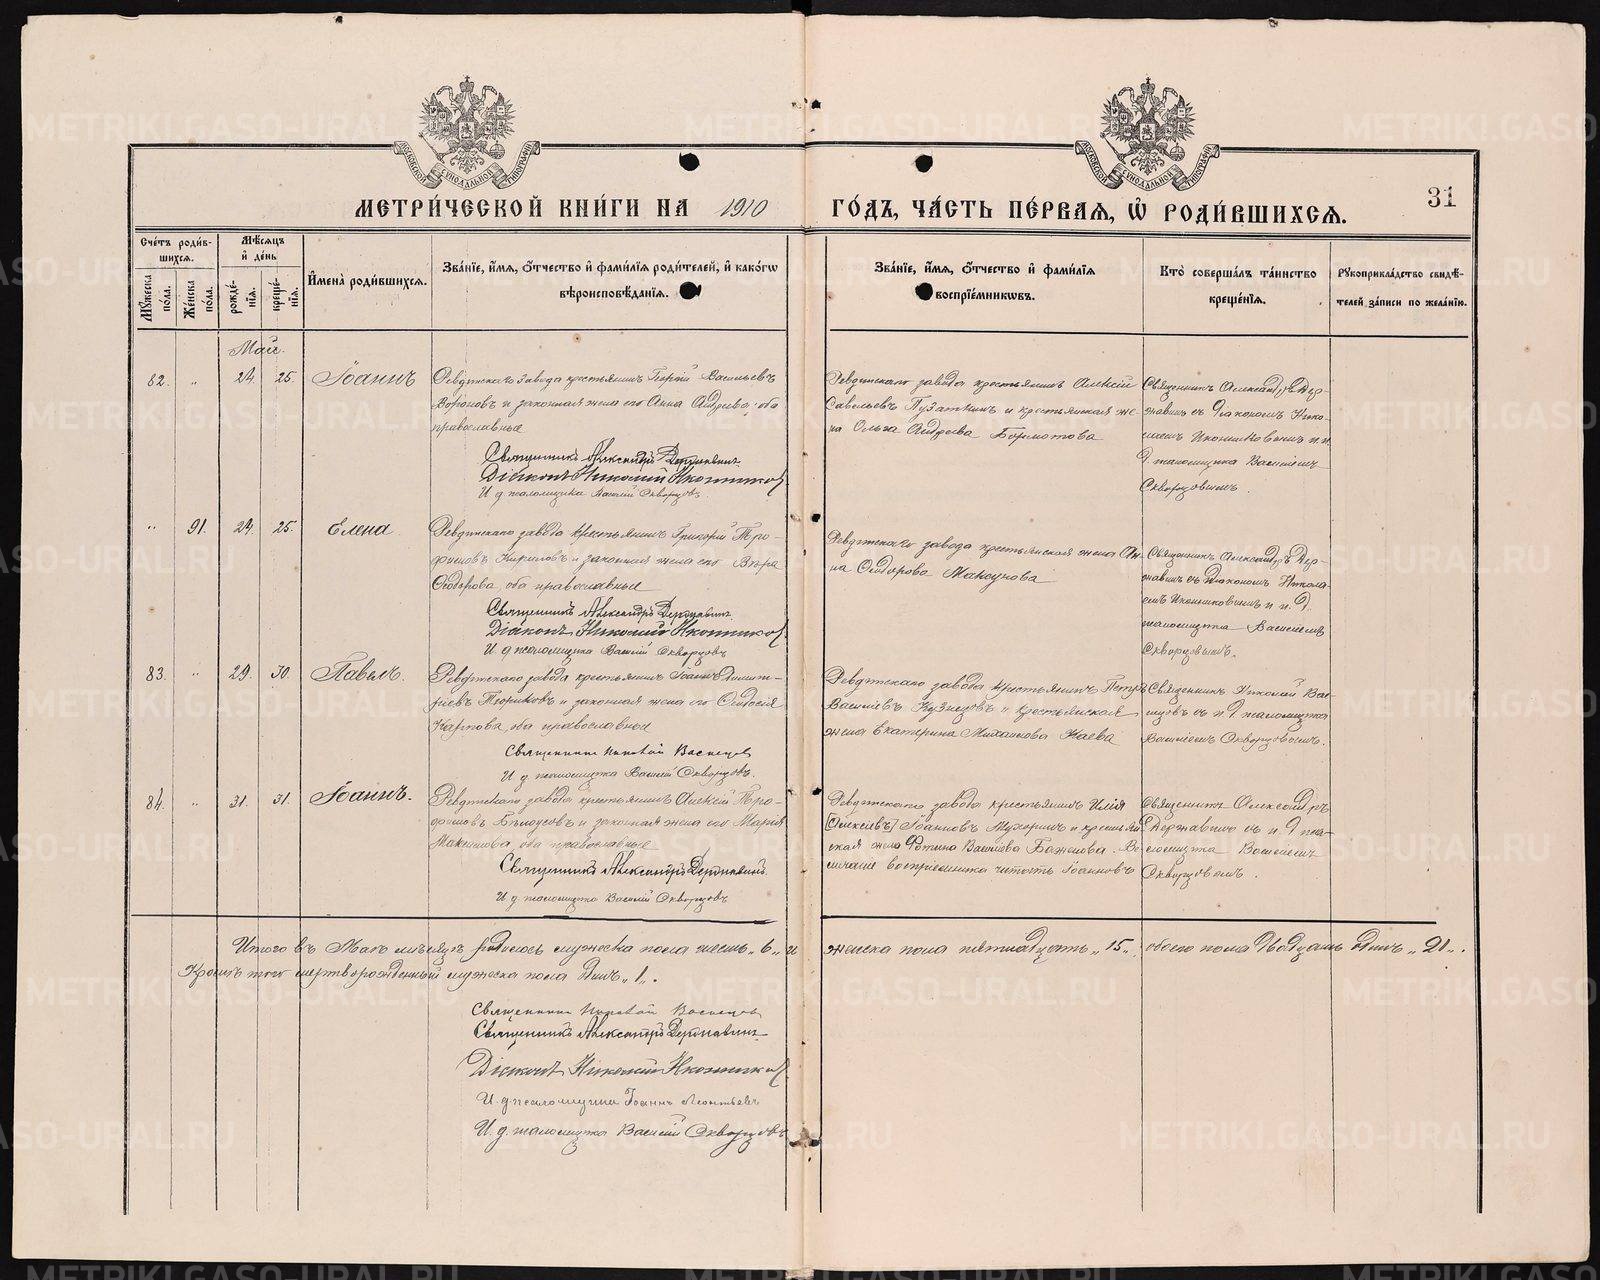 МОСКОВСКОЙ СѴНОДАЛЬНОЙ ТИПОГРАФІИ
МОСКОВСКОЙ СѴНОДАЛЬНОЙ ТИПОГРАФІИ
МЕТРИ́ЧЕСКОЙ КНИ́ГИ НА 1910 ГО́ДЪ, ЧА́СТЬ ПЕ́РВАЯ, Ѡ РОДИ́ВШИХСЯ.
31
Сче́тъ роди́в-
шихся.
Мꙋ́жеска
по́ла.
Же́нска
по́ла.
Мѣ́сяцъ
и҆ де́нь
рожде́-
нїя.
креще́-
нїя.
И҆мена̀ роди́вшихся.
Зва́нїе, и҆́мя, ѻ҆́тчество и҆ фами́лїя роди́телей, и҆ како́гѡ
вѣроисповѣ́данїя.
Зва́нїе, и҆́мя, ѻ҆́тчество и҆ фами́лїя
воспрїе́мникѡвъ.
Кто̀ соверша́лъ та́инство
креще́нїя.
Рꙋкоприкла́дство свидѣ́-
телей за́писи по жела́нїю.
Май.
82. " 24. 25. Іоаннъ
Ревдинскаго завода крестьянинъ Георгій Васильевъ
Вороновъ и законная жена его Анна Андреева, оба
православные
Священникъ Александръ Державинъ
Діаконъ Николай Иконников
И. д. псаломщика Василій Скворцовъ
Ревдинскаго завода крестьянинъ Алексій
Савельевъ Пузаткинъ и крестьянская же-
на Ольга Андреева Бормотова
Священникъ Александръ Дер-
жавинъ съ діакономъ Нико-
лаемъ Иконниковымъ и и.
д. псаломщика Василіемъ
Скворцовымъ.
" 91. 24. 25. Елена
Ревдинскаго завода крестьянинъ Григорій Тро-
фимовъ Кириловъ и законная жена его Вѣра
Ѳедорова, оба православные
Священникъ Александръ Державинъ
Діаконъ Николай Иконников
И. д. псаломщика Василій Скворцовъ
Ревдинскаго завода крестьянская жена Ан-
на Ѳедорова
Священникъ Александръ Дер-
жавинъ съ діакономъ Никола-
емъ Иконниковымъ и и. д.
псаломщика Василіемъ
Скворцовымъ.
83. " 29. 30. Павелъ.
Ревдинскаго завода крестьянинъ Іоаннъ Димит-
ріевъ Тюриковъ и законная жена его Ѳеодосія
Карпова, оба православные
Священникъ Николай
И. д. псаломщика Василій Скворцовъ.
Ревдинскаго завода крестьянинъ Петръ
Васильевъ Кузнецовъ и крестьянская
жена Екатерина Михаилова
Священникъ Николай Вас-
нецовъ съ и. д. псаломщика
Василіемъ Скворцовымъ.
84. " 31. 31. Іоаннъ.
Ревдинскаго завода крестьянинъ Алексій Тро-
фимовъ Бѣлоусовъ и законная жена его Марія
Максимова, оба православные
Священникъ Александръ Державинъ
И. д. псаломщика Василій Скворцовъ
Ревдинскаго завода крестьянинъ Илія
[Алексѣевъ] Іоанновъ Мухоринъ и крестьян-
ская жена Фотина Васильева Бажова. Въ
отчествѣ воспріемника читать Іоанновъ
Священникъ Александръ
Державинъ съ и. д. пса-
ломщика Василіемъ
Скворцовымъ.
Итого въ Маѣ мѣсяцѣ родилось мужеска пола шесть „6„ и женска пола пятнадцать „15„, обоего пола двадцать одинъ „21„.
Кромѣ того мертворожденный мужеска пола одинъ „1„.
Священникъ Николай
Священникъ Александръ Державинъ
Діаконъ Николай Иконников
И. д. псаломщика Іоаннъ Леонтьевъ
И. д. псаломщика Василій Скворцовъ
METRIKI.GASO-URAL.RU